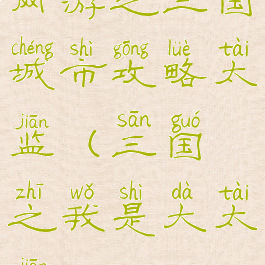 风游之三国
chéng shì gōng lüè tài
城市攻略太
jiān sān guó
监（三国
zhī wǒ shì dà tài
之我是大太
jiān